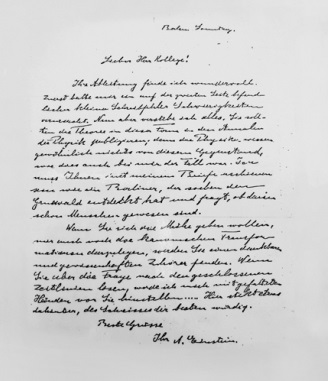 Berlin Sonntag.
Lieber Herr Kollege!
Ihre Ableitung finde ich wundervoll.
Zuerst hatte mir ein auf der zweiten Seite befind
licher kleiner Schreibfehler Schwierigkeiten
verursacht. Nun aber verstehe ich alles. Sie soll-
ten die Theorie in dieser Form in den Annalen
der Physik publizieren, denn die Physiker wissen
gewöhnlich nichts von diesem Gegenstand,
wie dies auch bei mir der Fall war. Ich
muss Ihnen mit meinem Briefe erschienen
sein wie ein Berliner, der soeben den
Grunewald entdeckt hat und fragt, ob darin
schon Menschen gewesen sind.
Wenn Sie sich die Mühe geben wollen,
mir auch noch die kanonischen Transfor-
mationen darzulegen, werden Sie einen dankbaren
und gewissenhaften Zuhörer finden. Wenn
Sie aber die Frage nach den geschlossenen
Zeitlinien lösen, werde ich mich mit gefalteten
Händen vor Sie hinstellen.... Hier steckt etwas
dahinter, des Schweisses der Besten würdig.
Beste Grüsse
Ihr A. Einstein.